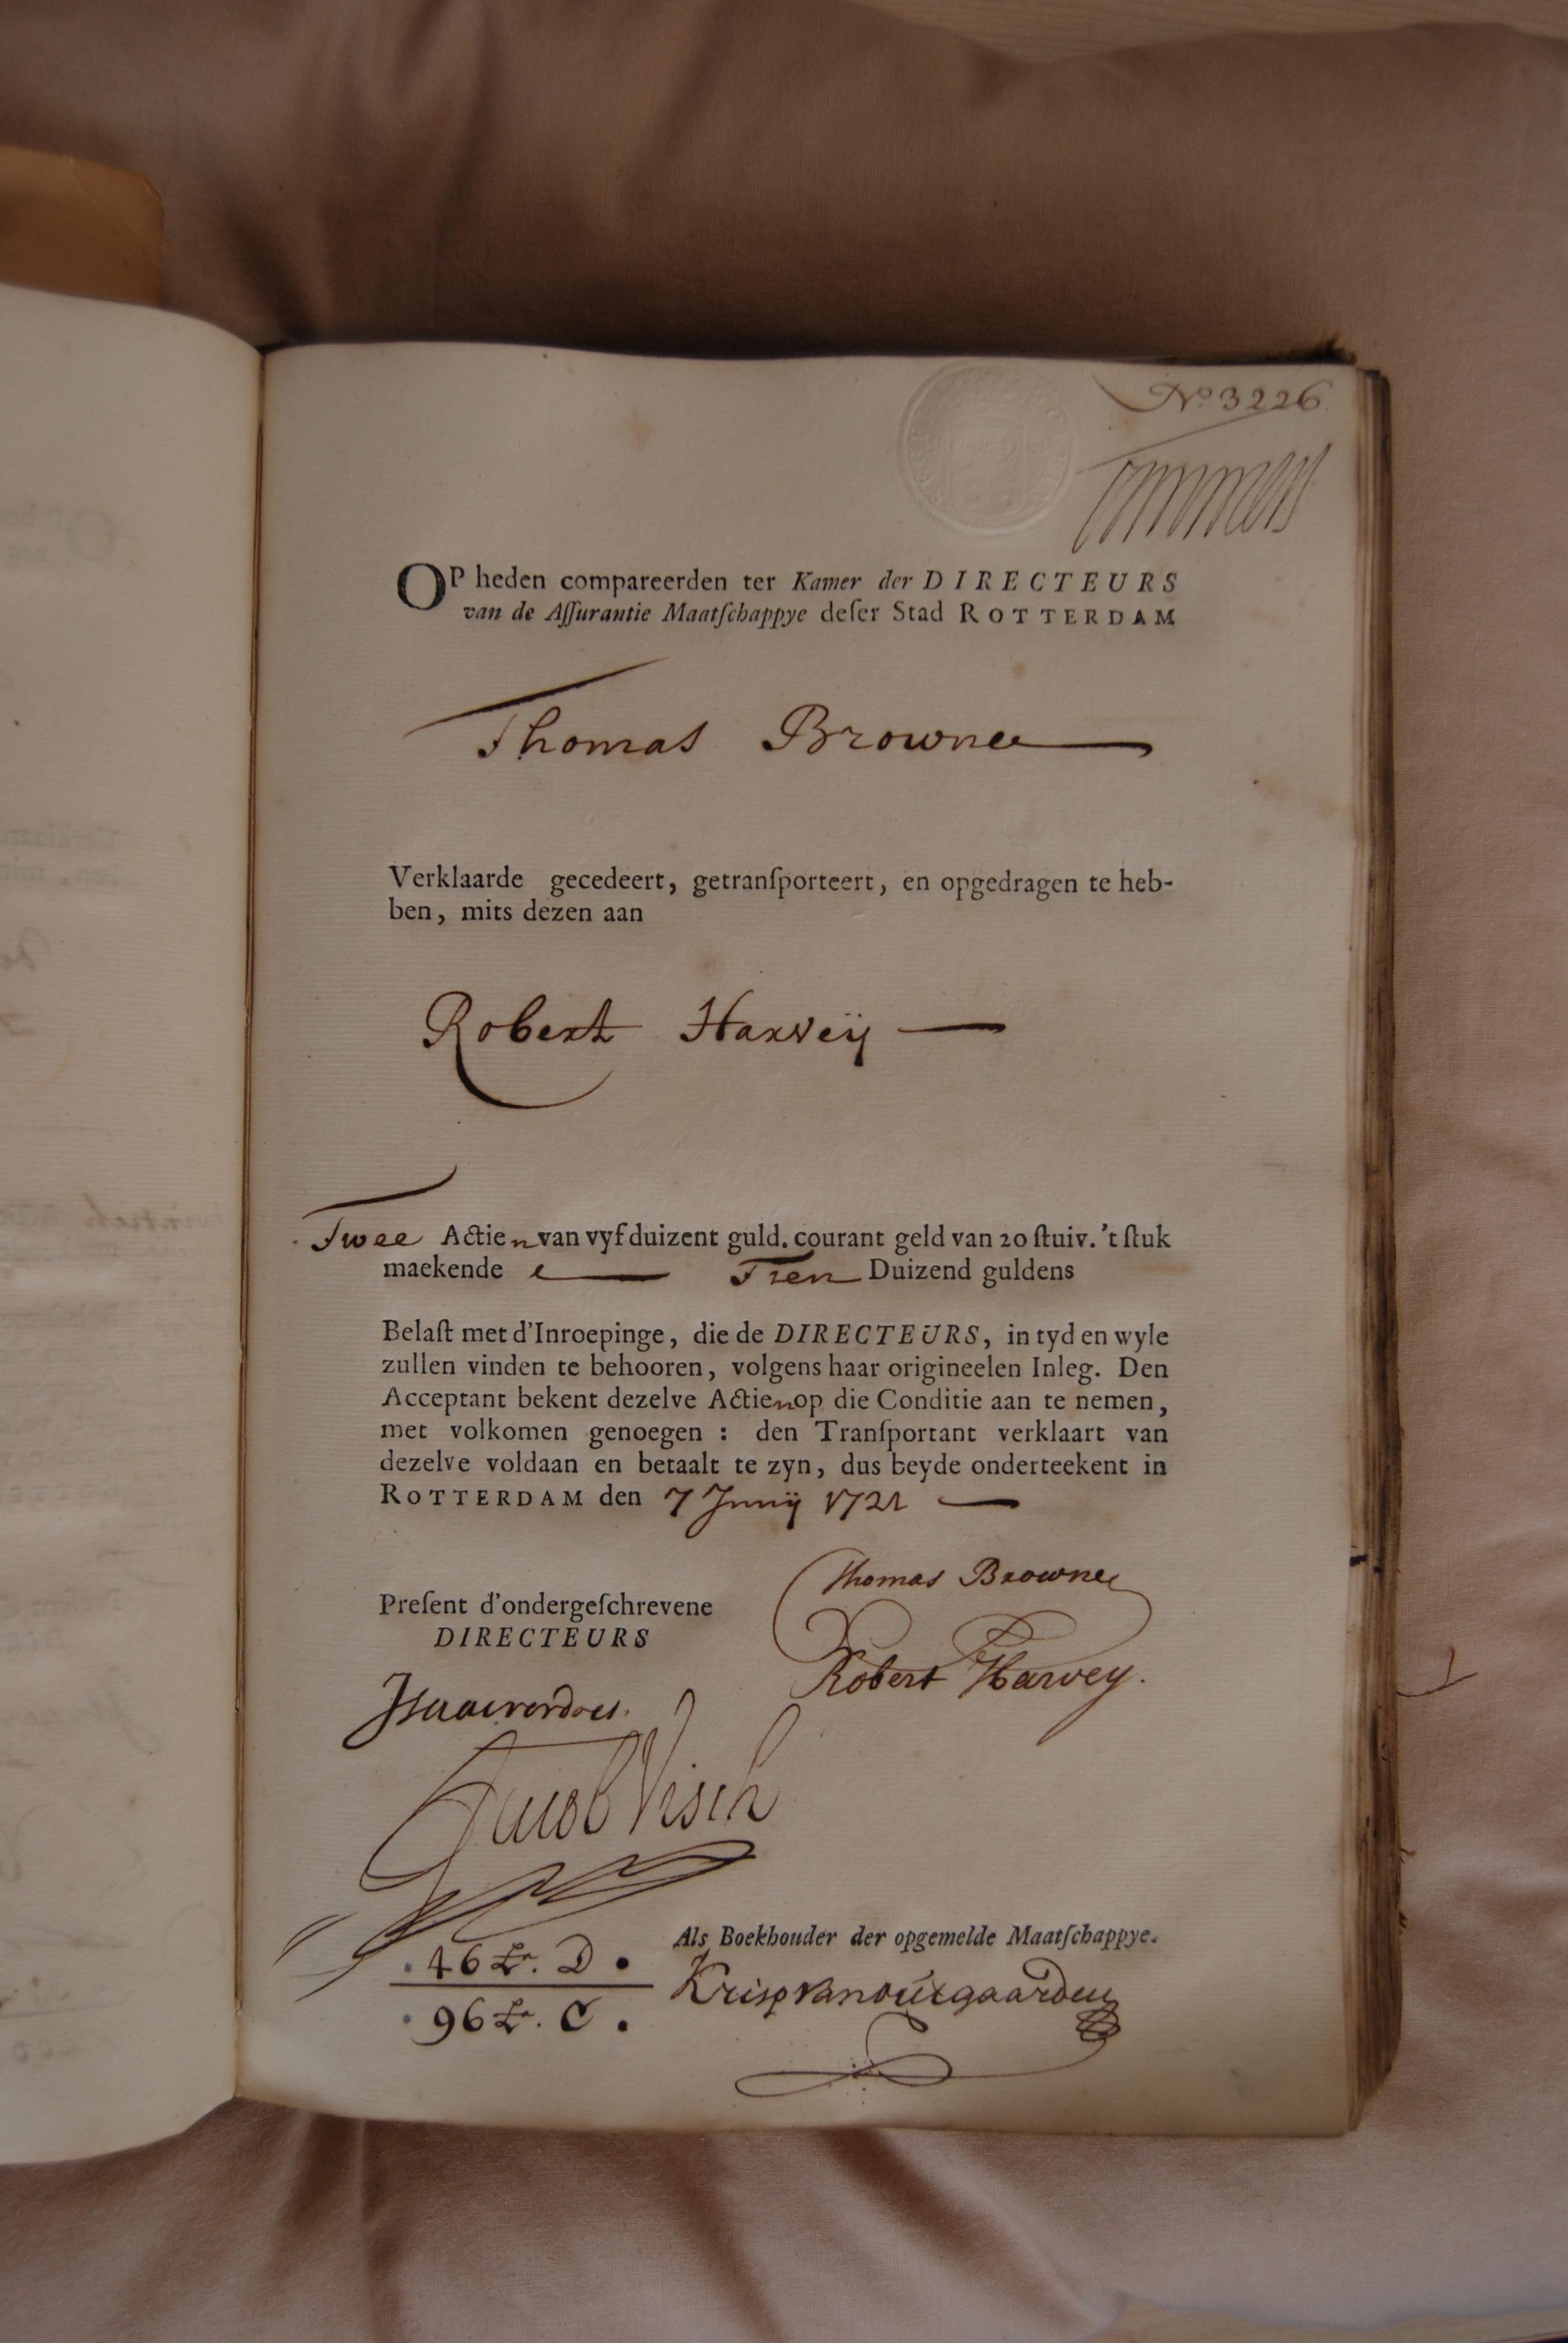 No 3226
OP heden compareerden ter Kamer der DIRECTEURS
van de Aſſurantie Maatſchappye deſer Stad ROTTERDAM
Thomas Browne
Verklaarde gecedeert, getranſporteert, en opgedragen te heb-
ben, mits dezen aan
Robert Harveÿ
Twee Actien van vyf duizent guld. courant geld van 20 ſtuiv. 't ſtuk
maekende Tien Duizend guldens
Belaſt met d'Inroepinge, die de DIRECTEURS, in tyd en wyle
zullen vinden te behooren, volgens haar origineelen Inleg. Den
Acceptant bekent dezelve Actien op die Conditie aan te nemen,
met volkomen genoegen : den Tranſportant verklaart van
dezelve voldaan en betaalt te zyn, dus beyde onderteekent in
ROTTERDAM den 7 Junij 1721
Thomas Browne
Preſent d'ondergeſchrevene
DIRECTEURS
Robert Harvey.
Jacob Visch
Als Boekhouder der opgemelde Maatſchappye.
46 Lr. D.
Krisp van outgaarden
96 Lr. C.